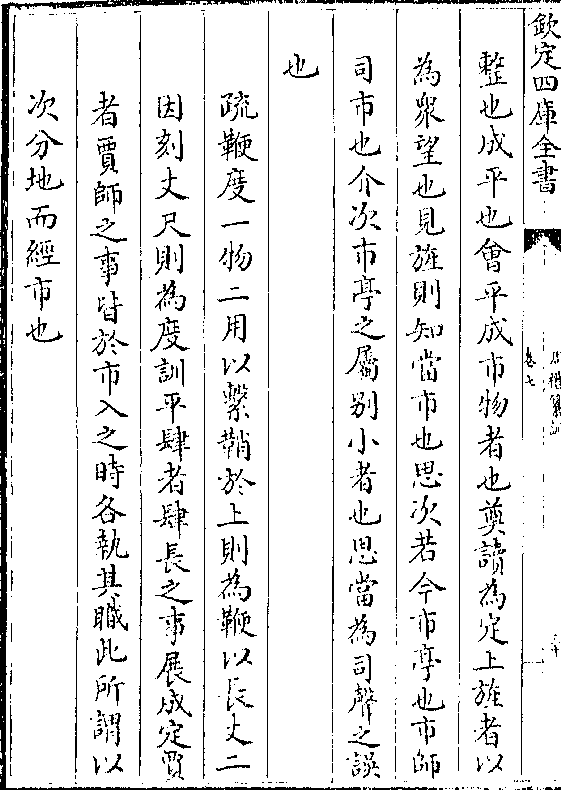 欽定四庫全書
卷七
整也成平也會平成市物者也奠讀為定上旌者以
為衆望也見旌則知當市也思次若今市亭也市師
司市也介次市亭之屬别小者也思當為司聲之誤
也
疏鞭度一物二用以繫鞘於上則為鞭以長丈二
因刻丈尺則為度訓平肆者肆長之事展成定賈
者賈師之事皆於市入之時各執其職此所謂以
次分地而經市也